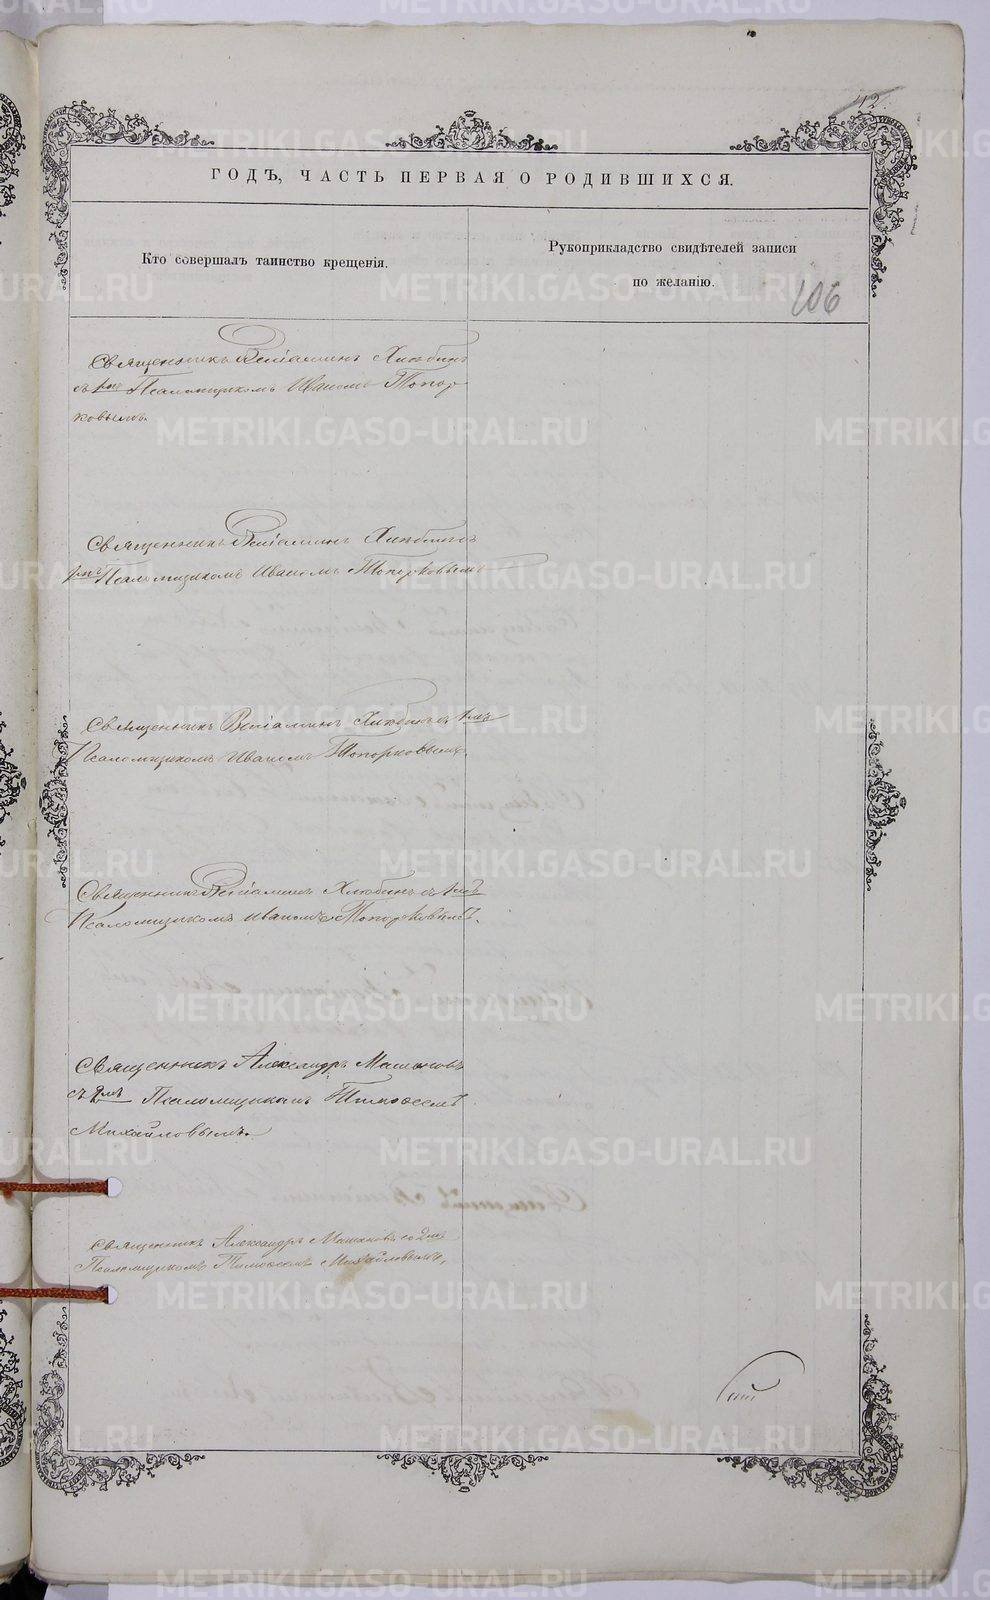 12.
ГОДЪ, ЧАСТЬ ПЕРВАЯ О РОДИВШИХСЯ.
Кто совершалъ таинство крещенія.
Рукоприкладство свидѣтелей записи
по желанію.
106
Священникъ Веніаминъ Хлюбинъ
съ 1мъ Псаломщикомъ Иваномъ Топор
ковымъ.
Священникъ Веніаминъ Хлюбинъ съ
1мъ Псаломщикомъ Иваномъ Топорковымъ
Священникъ Веніаминъ Хлюбинъ съ 1мъ
Псаломщикомъ Иваномъ Топорковымъ.
Священникъ Веніаминъ Хлюбинъ съ 1мъ
Псаломщикомъ Иваномъ Топорковымъ.
Священникъ Александръ Машановъ
съ 2мъ Псаломщикомъ Тимоѳеемъ
Михайловымъ.
Священникъ Александръ Машановъ со 2мъ
Псаломщикомъ Тимоѳеемъ Михайловымъ,
METRIKI.GASO-URAL.RU